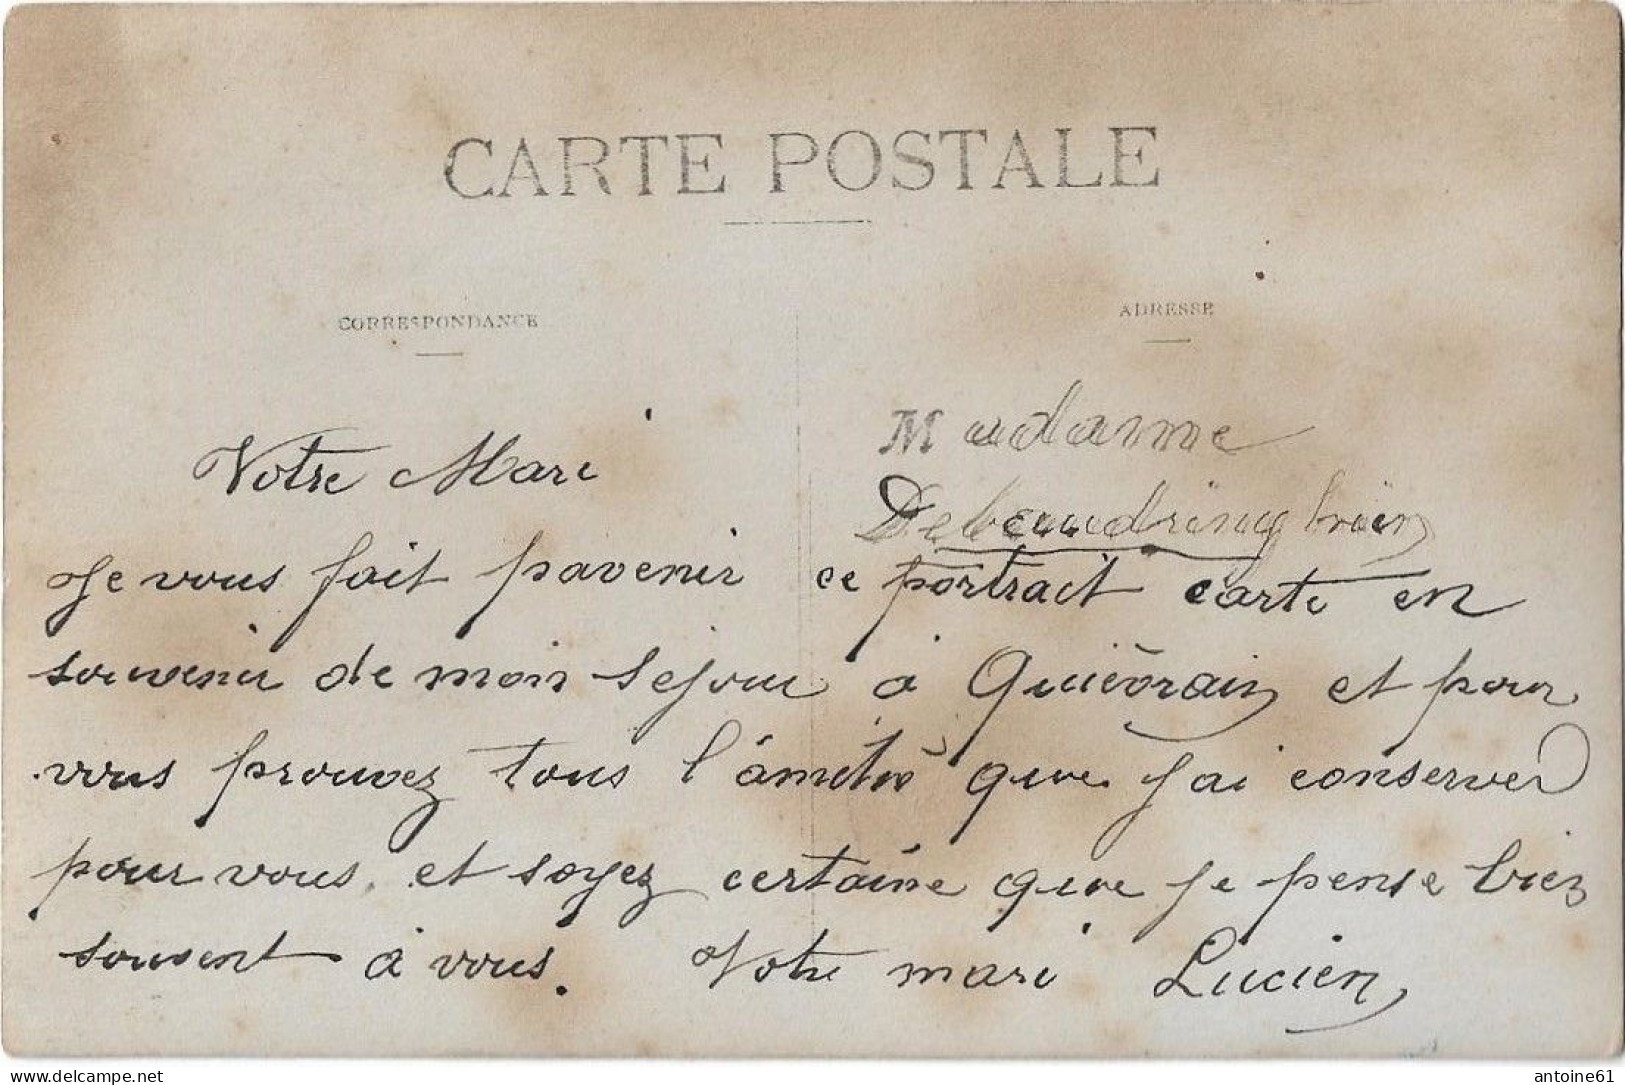 CARTE POSTALE
CORRESPONDANCE
ADRESSE
Madame
Votre Mari
Je vous fait pavenir ce portrait carte en
souvenir de mon séjour à Quiévrain et pour
vous prouvez tous l'amitié que j'ai conserver
pour vous, et soyez certaine que je pense bien
souvent à vous. Votre mari Lucien
antoine61